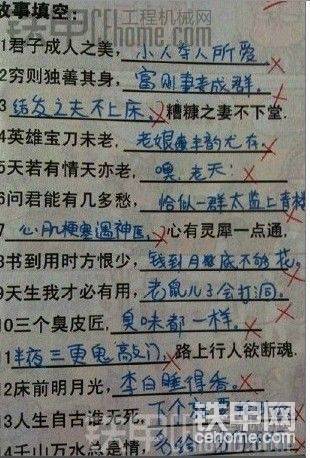 故事填空:
铁甲 工程机械网
cehome.com
1君子成人之美, 小人夺人所爱
2穷则独善其身, 富则妻妾成群.
3 结发之夫不上床, 糟糠之妻不下堂.
4英雄宝刀未老, 老娘丰韵尤存.
5天若有情天亦老, 嗯,老天
6问君能有几多愁, 恰似一群太监上青楼
7 心肌梗塞遇神医, 心有灵犀一点通,
8书到用时方恨少, 钱到月底不够花.
9天生我才必有用, 老鼠儿子会打洞.
10三个臭皮匠, 臭味都一样.
11 半夜三更鬼敲门, 路上行人欲断魂.
12床前明月光, 李白睡得香.
13人生自古谁无死, 下个
14千山万水总是情, 不给
铁甲网
cehome.com